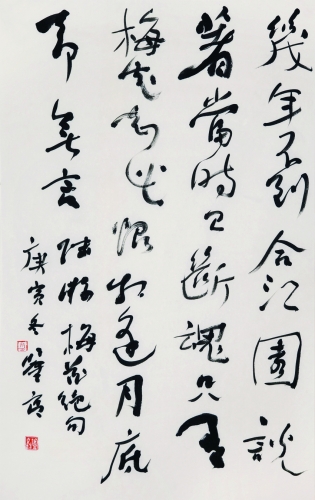 幾年不到合江園說
著當時已斷魂只有
梅花知此恨相逢月底
却無言
陸游梅花絕句
庚寅冬